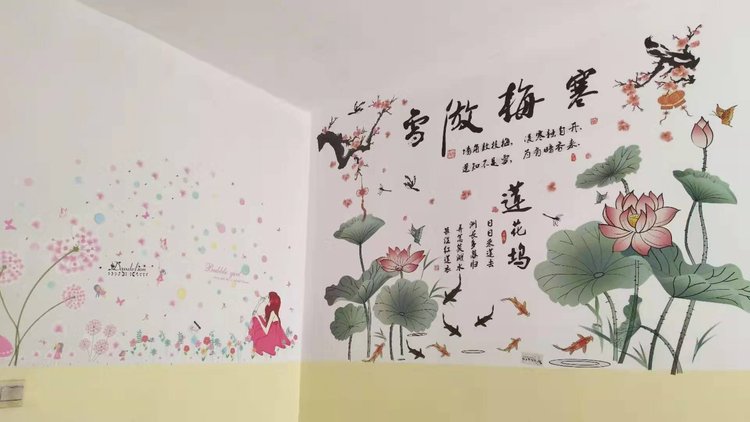 寒梅傲雪
墙角数枝梅，凌寒独自开。
遥知不是雪，为有暗香来。
莲花坞
日日采莲去
洲长多暮归
弄篙莫溅水
畏湿红莲衣
Dandelion
Bubble you